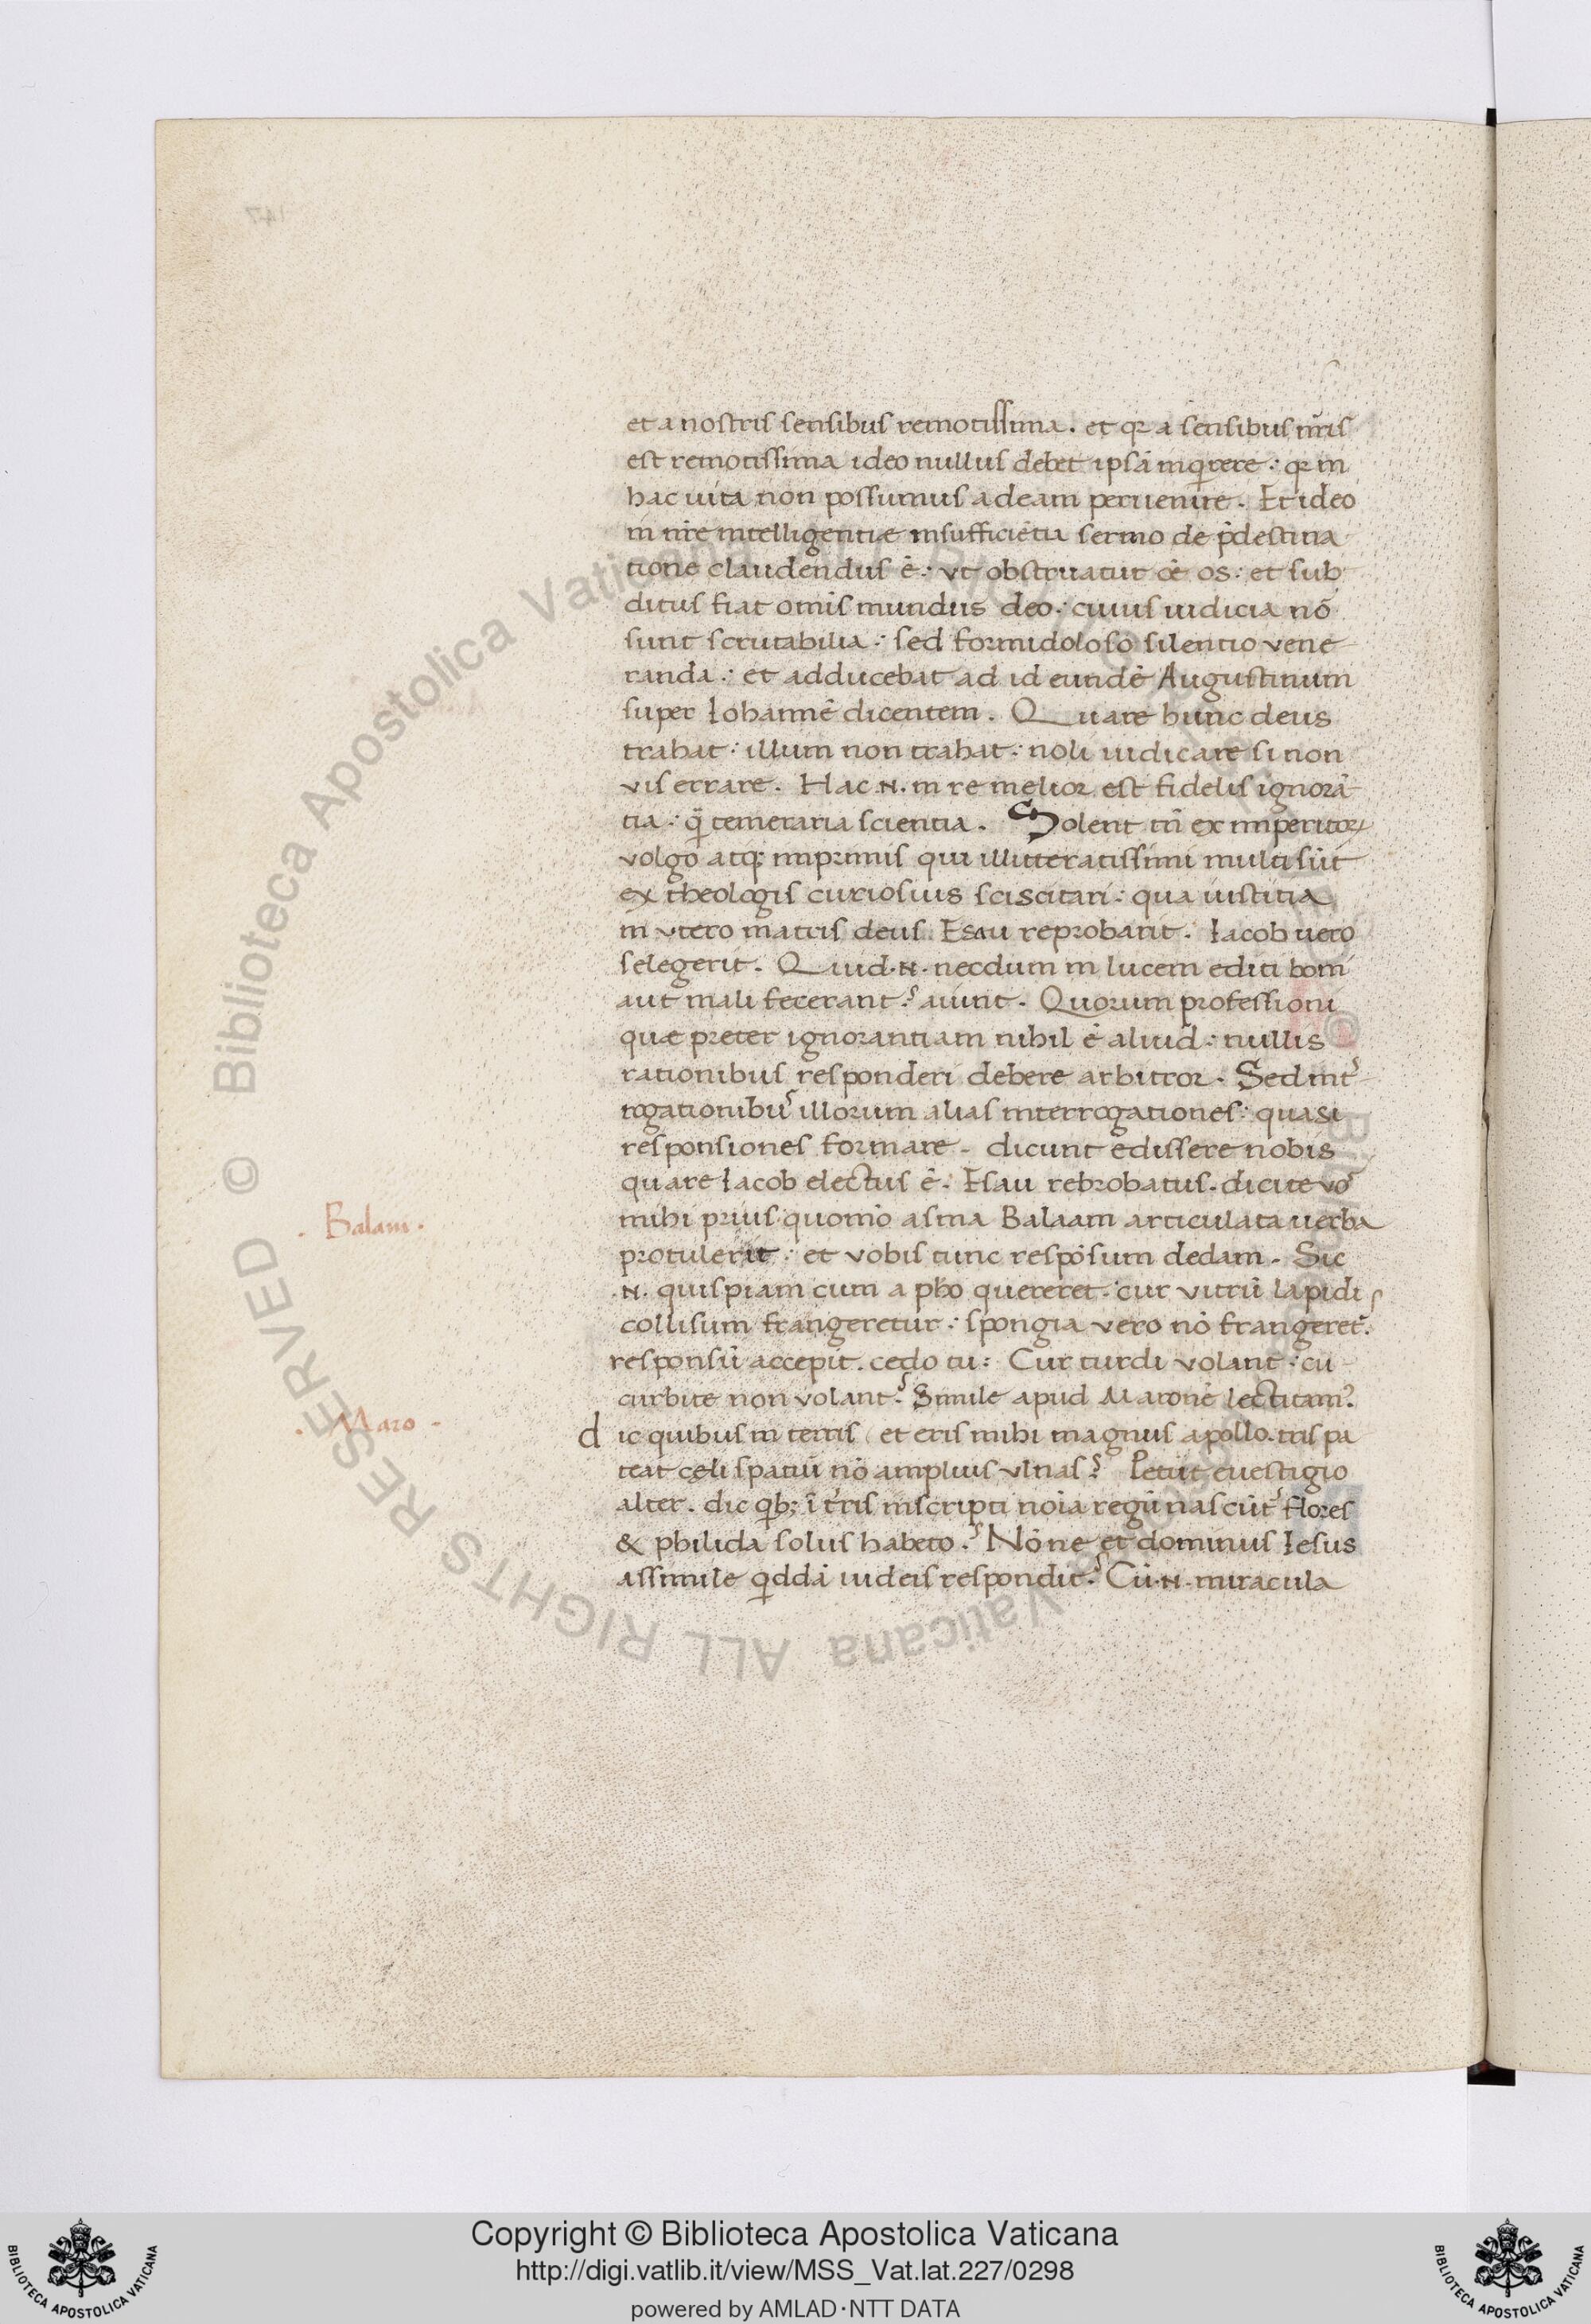 et a nostris sensibus remotissima. et qꝛ a sensibus nr̄is
est remotissima ideo nullus debet ipsā inq̇rere: qꝛ in
hac uita non possumus ad eam peruenire. Et ideo
in nr̄e intelligentiæ insufficiētia sermo de p̄destina
tione claudendus ē: vt obstruatur oē os: et sub
ditus fiat omīs mundus deo: cuius iudicia nō
sunt scrutabilia: sed formidoloso silentio vene
randa: et adducebat ad id eundē Augustinum
super Iohannē dicentem. Quare hunc deus
trahat: illum non trahat: noli iudicare si non
vis errare. Hac .N. in re melior est fidelis ignorā
tia: q̄ temeraria scientia. Solent tn̄ ex imperitoꝝ
volgo atq; inprimis qui illitteratissimi multi sūt
ex theologis curiosius sciscitari: qua iustitia
in vtero matris deus Esau reprobarit. Iacob uero
selegerit. Quid .N. necdum in lucem editi boni
aut mali fecerant? aiunt. Quorum professioni
quæ preter ignorantiam nihil ē aliud: nullis
rationibus responderi debere arbitror. Sed int̉
rogationibus illorum alias interrogationes: quasi
responsiones formare. dicunt edissere nobis
quare Iacob electus ē. Esau rebrobatus. dicite vō
mihi prius quomō asina Balaam articulata uerba
protulerit: et vobis tunc respōsum dedam. Sic
.N. quispiam cum a pho quereret: cur vitrū lapidi
collisum frangeretur: spongia vero nō frangeret̉.
responsū accepit. cedo tu: Cur turdi volant: cu
curbite non volant? Simile apud Maronē lectitam̉.
dic quibus in terris et eris mihi magnus apollo. tris pa
teat cęli spatiū nō amplius vlnas? Petiit euestigio
alter. dic qb; ī t̉ris inscripti noīa regū nascūt̉ flores
& philida solus habeto? Nōne et dominus Iesus
assimile qddā iudeis respondit? Cū .N. miracula
. Balam .
. Maro .
147
© Biblioteca Apostolica Vaticana ALL RIGHTS RESERVED
Copyright © Biblioteca Apostolica Vaticana
http://digi.vatlib.it/view/MSS_Vat.lat.227/0298
powered by AMLAD·NTT DATA
BIBLIOTECA APOSTOLICA VATICANA
BIBLIOTECA APOSTOLICA VATICANA